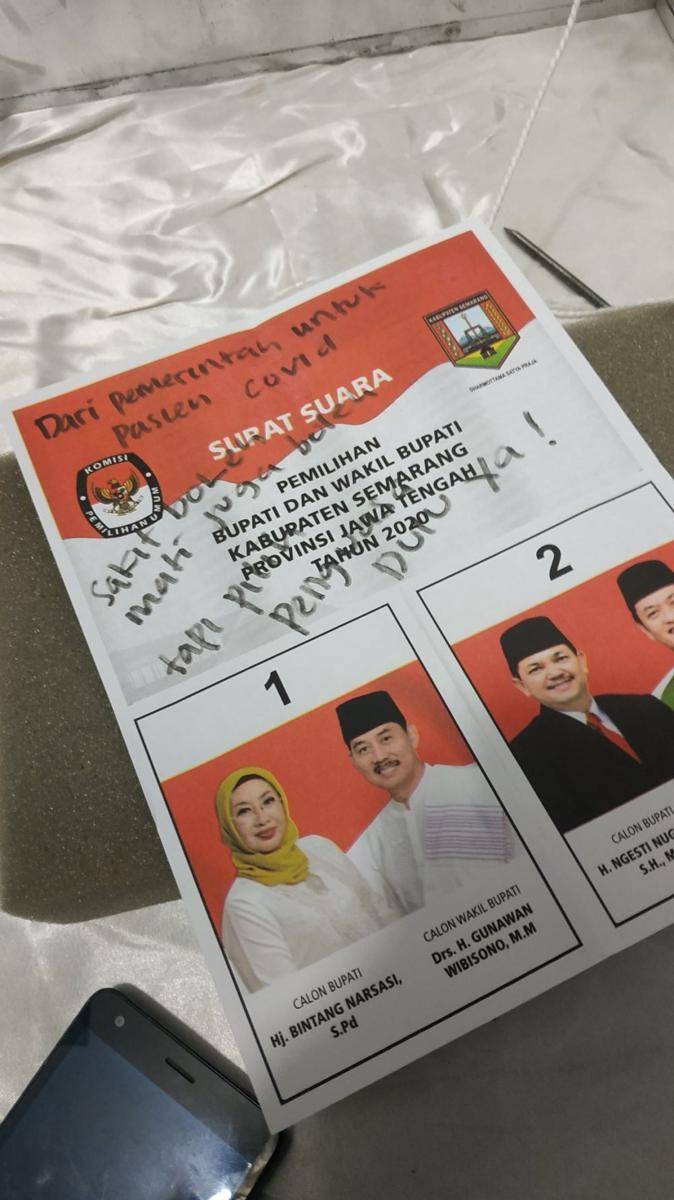 Dari pemerintah untuk
pasien covid
KABUPATEN SEMARANG
DHARMOTTAMA SATYA PRAJA
SURAT SUARA
KOMISI
PEMILIHAN UMUM
PEMILIHAN
BUPATI DAN WAKIL BUPATI
KABUPATEN SEMARANG
PROVINSI JAWA TENGAH
TAHUN 2020
Sakit boleh
mati juga boleh
tapi pilih
Dulu ya!
1
2
CALON BUPATI
Hj. BINTANG NARSASI,
S.Pd
CALON WAKIL BUPATI
Drs. H. GUNAWAN
WIBISONO, M.M
CALON BUPATI
H. NGESTI NUG
S.H., M